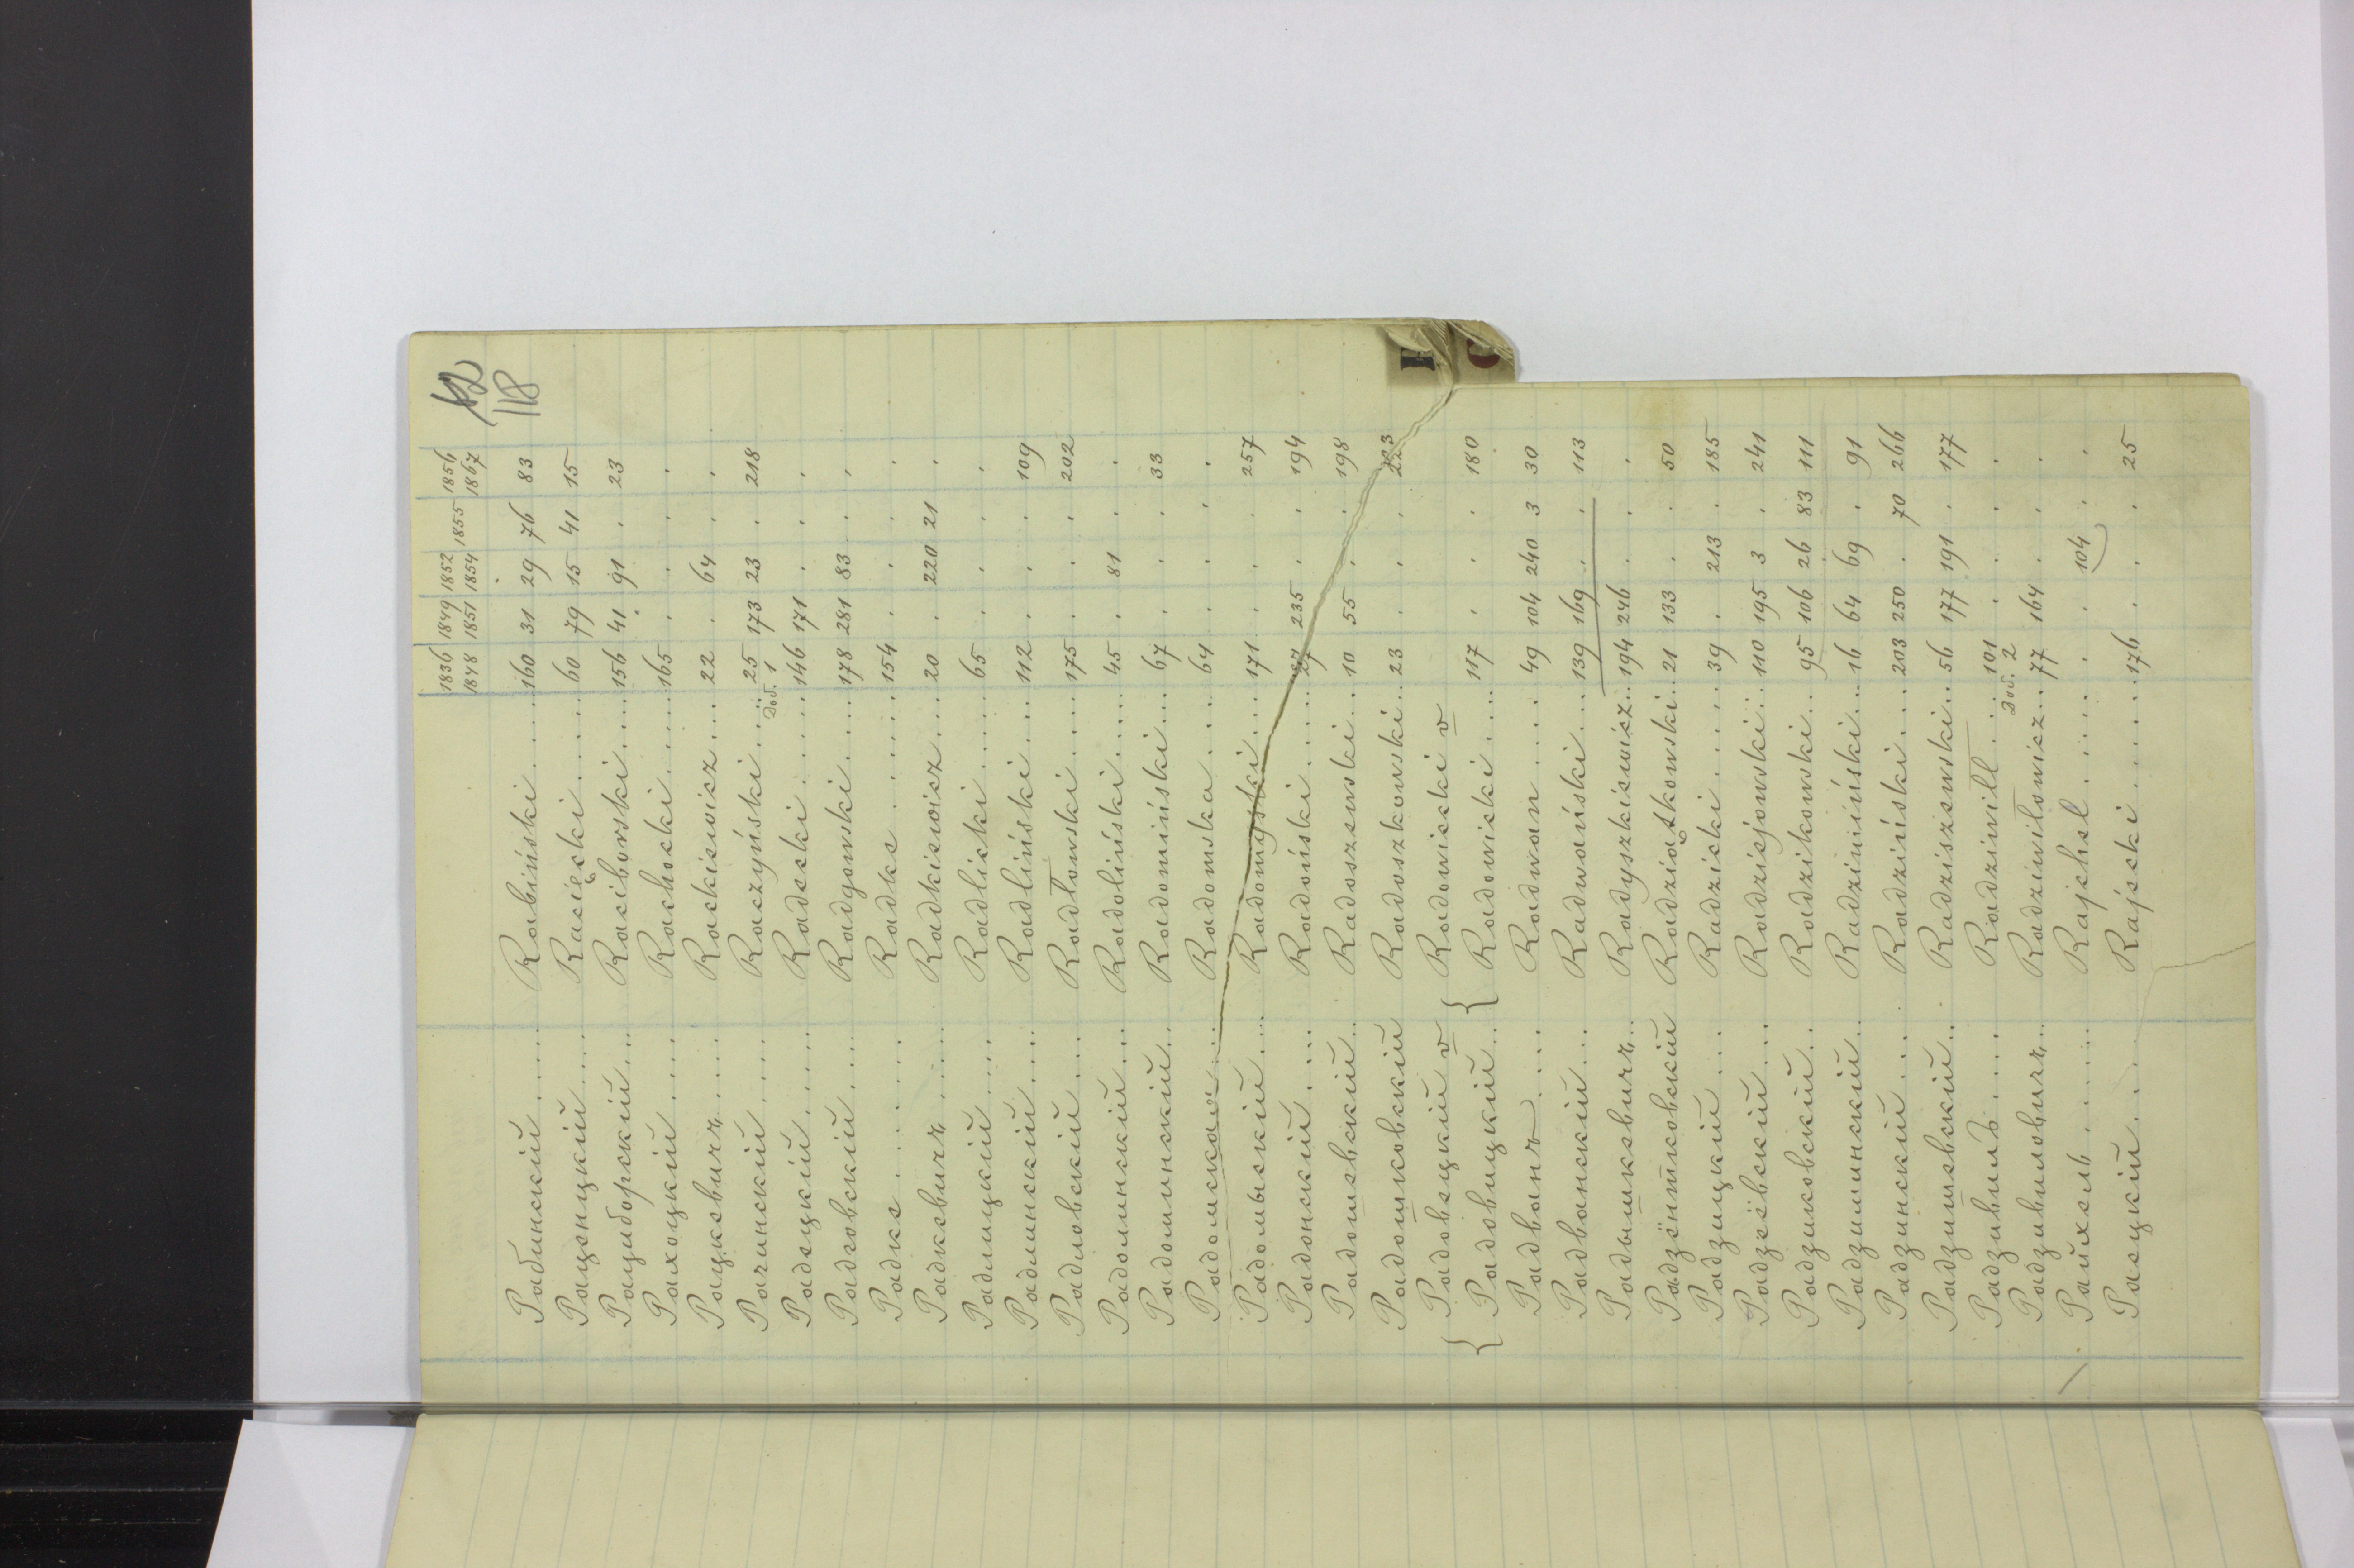 118
1836 1849 1852 1855 1856
1848 1851 1854 1867
Рабинскій ..... Rabiński ..... 160 31 29 76 83
Раценцкій ..... Racięcki ..... 60 79 15 41 15
Рациборскій ... Raciborski .... 156 41 91 . 23
Рахоцкій ..... Rachocki ..... 165 . . . .
Рацкевичъ ..... Rackiewicz .... 22 . 64 . .
Рачинскій ..... Raczyński .... 25 173 23 . 218
Dod. 1
Радецкій ..... Radecki ..... 146 171 . . .
Радговскій ..... Radgowski .... 178 281 83 . .
Радке ...... Radke ...... 154 . . . .
Радкевичъ ..... Radkiewicz .... 20 . 220 21 .
Радлицкій ..... Radlicki ..... 65 . . . .
Радлинскій .... Radliński .... 112 . . . 109
Радловскій .... Radłowski .... 175 . . . 202
Радолинскій ... Radoliński .... 45 . 81 . .
Радоминскій ... Radomiński ... 67 . . . 33
Радомская ... Radomska .... 64 . . . .
Радомыскій .... Radomyski .... 171 . . . 257
Радонскій .... Radoński ..... 27 235 . . 194
Радошевскій .. Radoszewski ... 10 55 . . 198
Радошковскій Radoszkowski .. 23 . . . 223
Радовецкій v Radowiecki v
Радовицкій ... Radowicki .... 117 . . . 180
Радванъ .... Radwan .... 49 104 240 3 30
Радванскій .... Radwański ... 139 169 . . 113
Радышкевичъ .. Radyszkiewicz .. 194 246 . . .
Радзёнтковскій Radziątkowski .. 21 133 . . 50
Радзицкій ... Radzicki ..... 39 . 213 . 185
Радзеёвскій .... Radziejowski ... 110 195 3 . 241
Радзиковскій .. Radzikowski .. 95 106 26 83 111
Радзиминскій .. Radzimiński ... 16 64 69 . 91
Радзинскій .... Radziński .... 203 250 . 70 266
Радзишевскій .. Radziszewski .. 56 177 191 . 177
Радзивилъ .... Radziwill .... 101 . . . .
Dod. 2
Радзивиловичъ .. Radziwiłowicz .. 77 164 . . .
Райхель ..... Rajchel ..... . . 104 . .
Раецкій .... Rajecki ..... 176 . . . 25